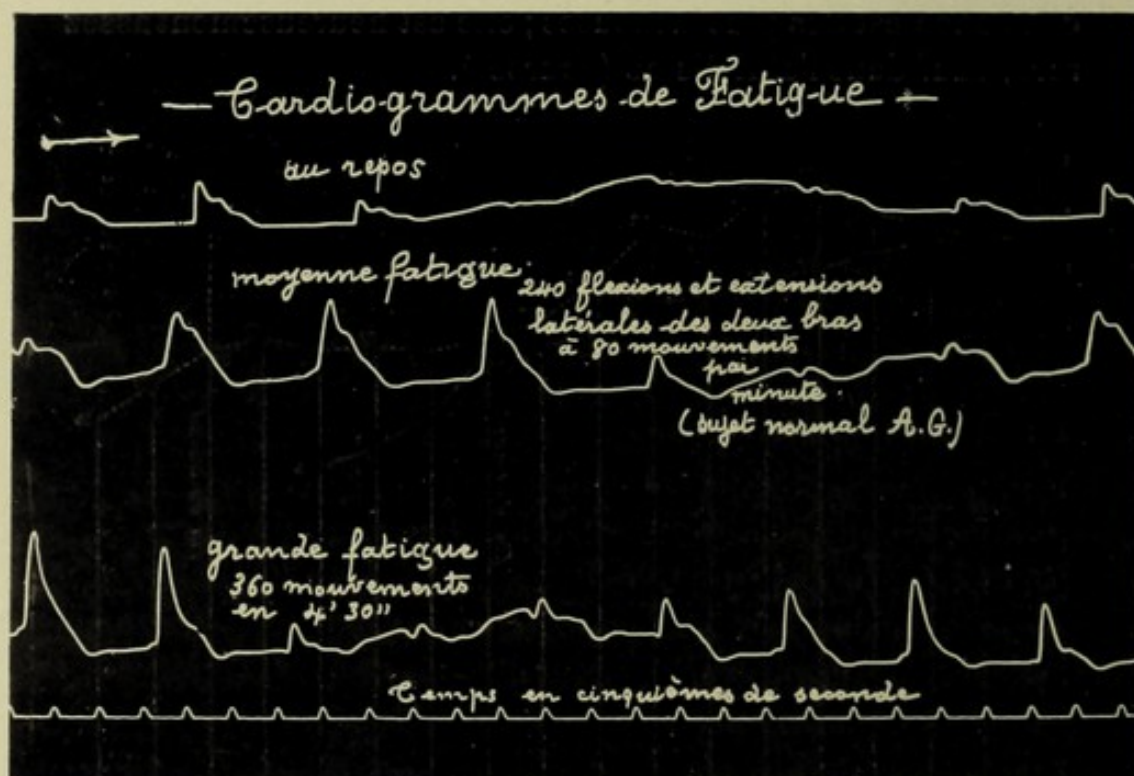 — Cardiogrammes de Fatigue —
au repos
moyenne fatigue.
240 flexions et extensions
latérales des deux bras
à 80 mouvements
par
minute.
(sujet normal A.G.)
grande fatigue
360 mouvements
en 4' 30"
Temps en cinquièmes de seconde